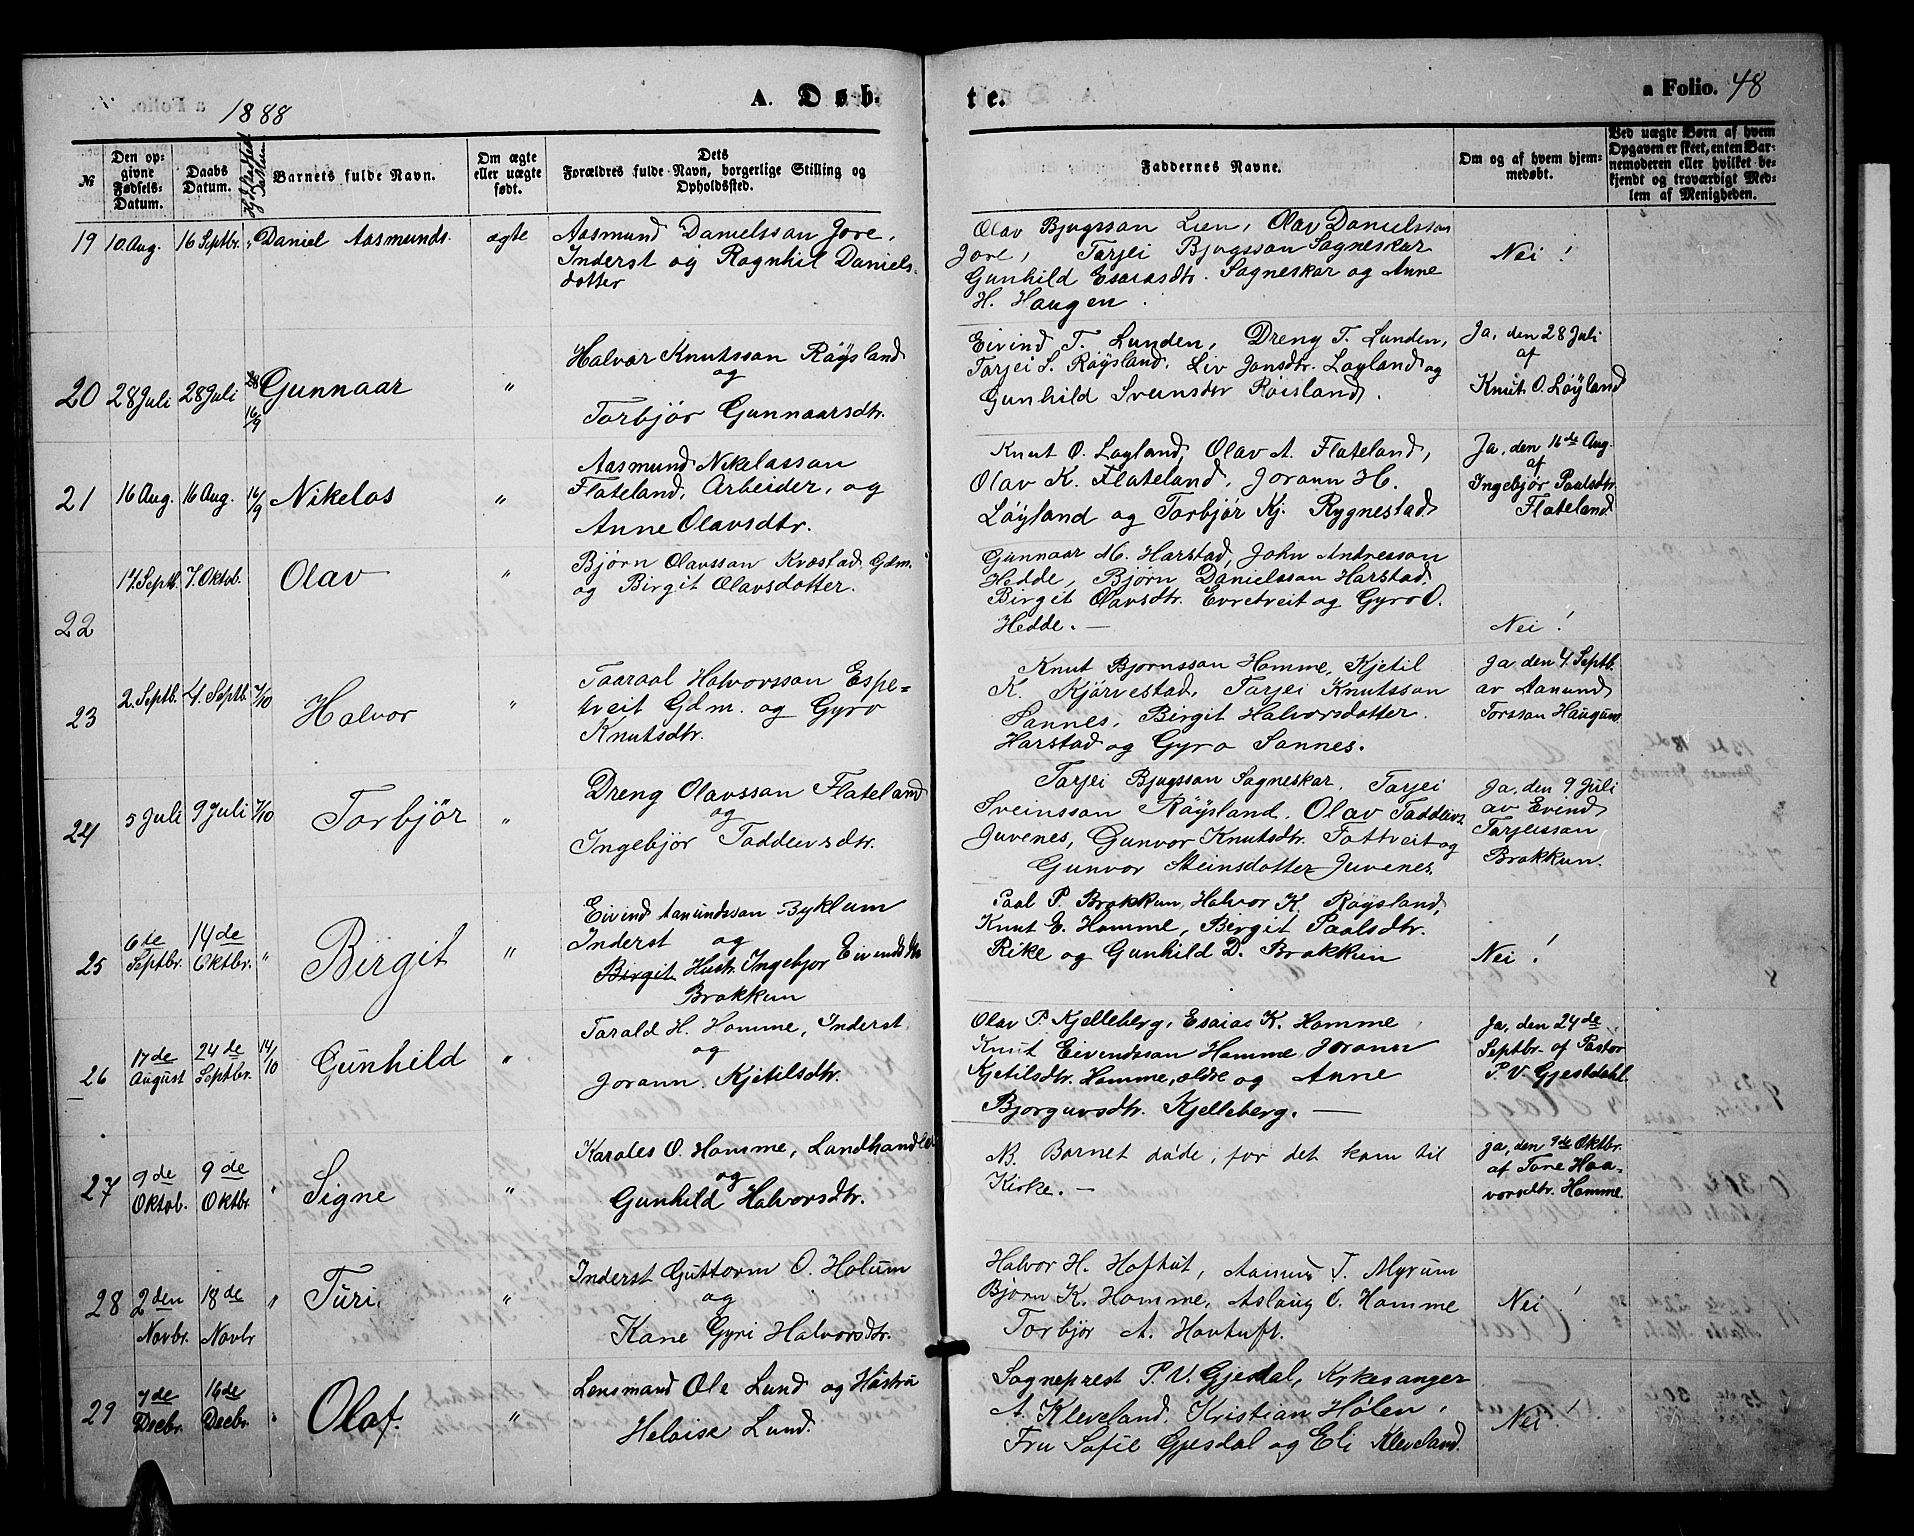 1888
A. Døb-
te.
a Folio. 48
№
Den op-
givne
Fødsels-
Datum.
Daabs
Datum.
Barnets fulde Navn.
Om ægte
eller uægte
født.
Dets
Forældres fulde Navn, borgerlige Stilling og
Opholdssted.
Faddernes Navne.
Om og af hvem hjem-
medøbt.
Ved uægte Børn af hvem
Opgaven er skeet, enten Bar-
nemoderen eller hvilket be-
kjendt og troværdigt Med-
lem af Menigheden.
19 10 Aug. 16 Septbr. " Daniel Aasmunds. ægte
Aasmund Danielsson Jore,
Inderst og Ragnhil Daniels-
dotter
Olav Bjugsson Lien, Olav Danielsson
Jore, Tarjei Bjugsson Sagneskar
Gunhild Esaiasdtr. Sagneskar og Anne
H. Haugen.
Nei!
20 28 Juli 28 Juli 16/9 Gunnaar "
Halvor Knutsson Røysland
og
Torbjør Gunnaarsdtr.
Eivind T. Lunden, Dreng T. Lunden,
Tarjei S. Røysland, Liv Jonsdtr. Løyland og
Gunhild Svensdtr Røisland.
Ja, den 28 Juli
af
Knut O. Løyland
21 16 Aug. 16 Aug. 16/9 Nikelos "
Aasmund Nikelasson
Flateland, Arbeider, og
Anne Olavsdtr.
Knut O. Løyland, Olav A. Flateland,
Olav K. Flateland, Jorann H.
Løyland og Torbjør Kj. Rygnestad
Ja, den 16de Aug.
af
Ingebjør Paalsdtr.
Flateland
22 14 Septb. 7. Oktob. Olav "
Bjørn Olavsson Kvæstad Gdm.
og Birgit Olavsdotter.
Gunnaar M. Harstad, John Andresson
Hedde, Bjørn Danielsson Harstad,
Birgit Olavsdtr. Evretveit og Gyro O.
Hedde. —
Nei!
23 2. Septb. 4. Septb 7/10 Halvor "
Taaraal Halvorsson Espe=
tveit Gdm. og Gyro
Knutsdtr.
Knut Bjørnsson Homme, Kjetil
K. Kjørvestad, Tarjei Knutsson
Sannes, Birgit Halvorsdotter
Harstad og Gyro Sannes.
Ja, den 4. Septb.
av Aamund
Torsson Haugum
24 5 Juli 9 Juli 7/10 Torbjør "
Dreng Olavsson Flateland
og
Ingebjør Taddeivsdtr.
Tarjei Bjugsson Sagneskar, Tarjei
Sveinsson Røysland, Olav Taddeivs.
Juvenes, Gunvor Knutsdtr. Tottveit og
Gunvor Steinsdotter Juvenes.
Ja, den 9 Juli
av Evind
Tarjeisson
Brokkun.
25 6te Septbr. 14de Oktbr. " Birgit "
Eivind Aamundsson Byklum
Inderst og
Birgit Hustr. Ingebjor Eivindsdtr
Brokkun
Paal P. Brokkun, Halvor K. Røysland,
Knut E. Homme, Birgit Paalsdtr.
Rike og Gunhild D. Brokkun
Nei!
26 17de August 24de Septbr. 14/10 Gunhild "
Tarald H. Homme, Inderst
og
Jorann Kjetilsdtr.
Olav P. Kjelleberg, Esaias K. Homme
Knut Eivendsson Homme, Jorann
Kjetilsdtr. Homme, ældre og Anne
Bjorguvsdtr. Kjelleberg. —
Ja, den 24de
Septbr. af Pastor
P. V Gjestdahl.
27 9de Oktob. 9de Oktbr. " Signe "
Karoles O. Homme, Landhandler
og
Gunhild Halvorsdtr.
NB. Barnet døde, før det kom til
Kirke. —
ja, den 9de Oktbr.
af Tore Haa-
vorsdtr. Homme.
28 2den Novbr. 18de Novbr " Turi. "
Inderst Guttorm O. Holum
og
Kone Gyri Halvorsdtr.
Halvor H. Hoftut, Aamun T. Myrum
Bjørn K. Homme, Aslaug O. Homme
Torbjør A. Hovtuft.
Nei!
29 7de Decbr. 16de Decbr. " Olaf. "
Lensmand Ole Lund og Hustru
Heloise Lund.
Sogneprest P. V. Gjesdal, Kirkesanger
A. Kleveland, Kristian Hølen,
Fru Sofie Gjesdal og Eli Kleveland.
Nei!